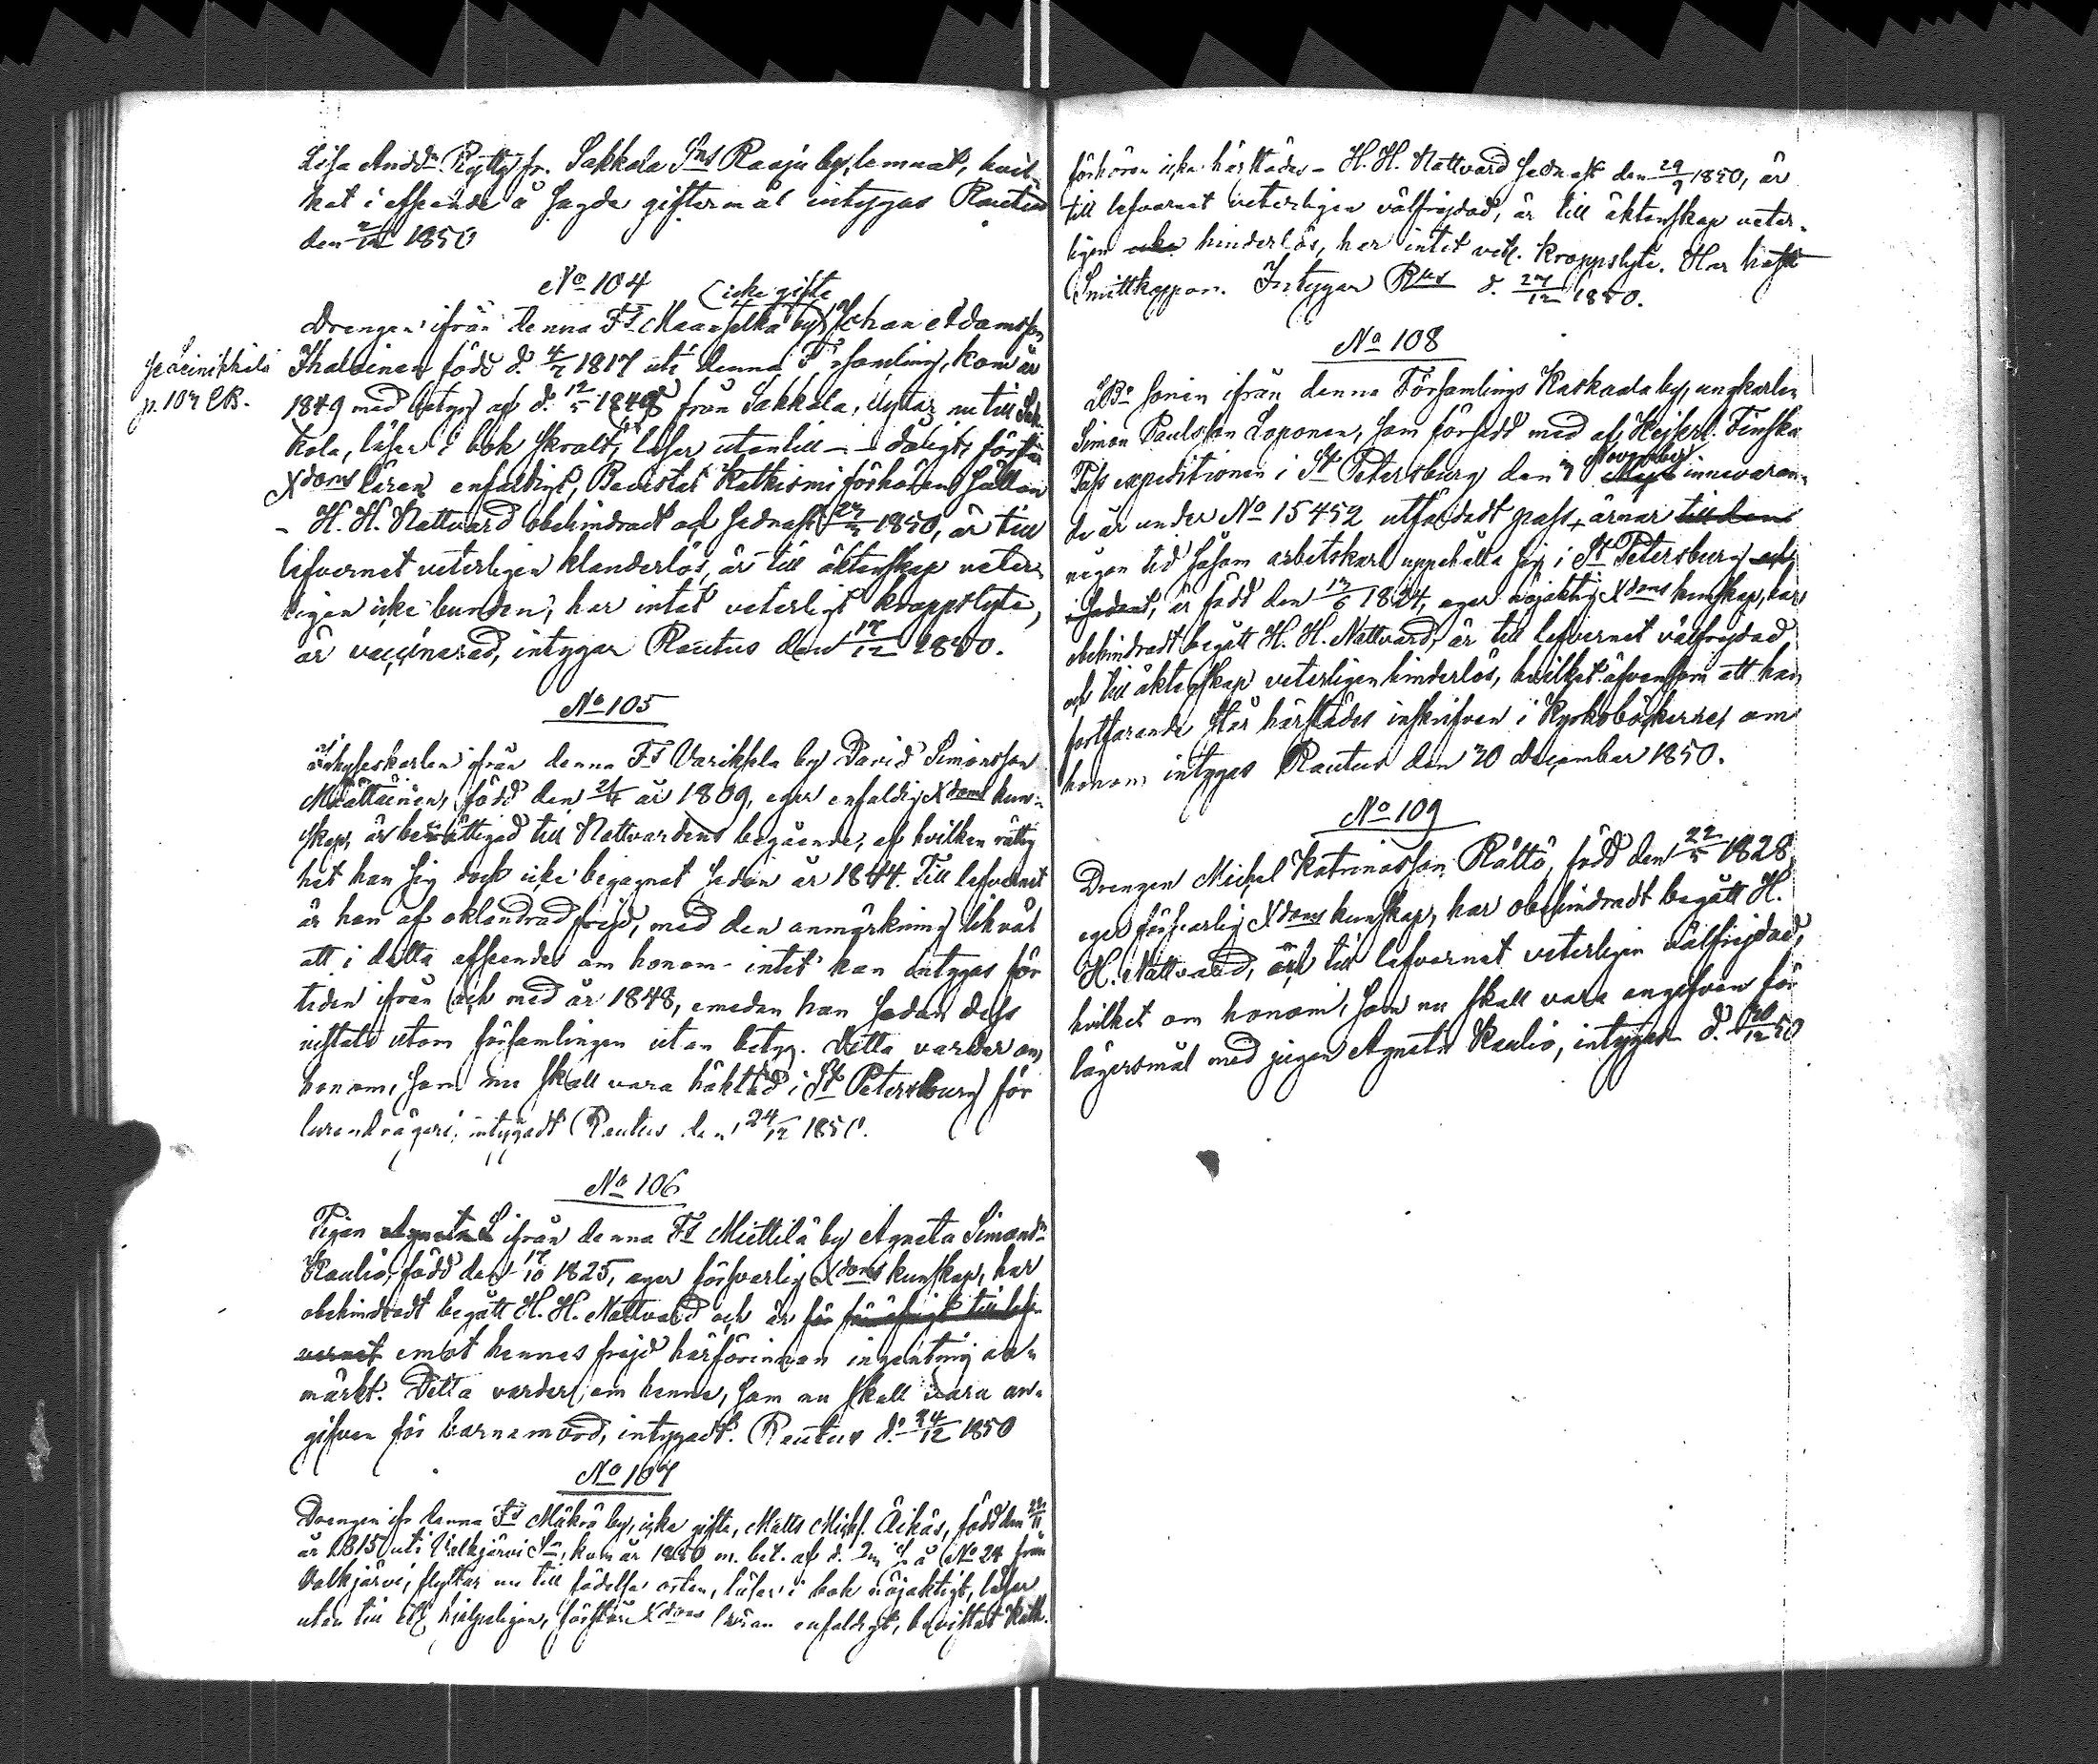 Lisa Andsdr Pyttÿ fr. Sakkola Sns Raaju by, lemnat, hvil-
ket i afseende å sagde giftermål intygas Rautus
den 2/12 1850
No 104
(icke gifte
Drengen ifrån denna Fs Maanselkä by Johan Adamsson
Ihalainen född d. 4/7 1817 uti denna Församling, kom år
p. 107 CB.
1849 med betyg af d. 12/5 1849 från Sakkola, flyttar nu till Sak-
kola, läser i bok skralt, läser utantill - - dåligt, förstår
Xdoms läran enfaldigt, Bevistat Katkismi förhören hållan
- H. H. Nattvard obehindradt och sednast 1850, är till
lefvernet veterligen klanderlös, är till äktenskap veter-
ligen icke bunden, har intet veterligt kroppslyte,
är vaccinerad, intygar Rautus den 17/12 1850.
No 105
Inhyseskarlen ifrån denna Fs Varikselä by David Simonsson
Määttäinen, född den år 1809, eger enfaldig Xdoms kun-
skap, är berättigad till Nattvardens begående, af hvilken rättig
het han sig dock icke begagnat sedan år 1844. Till lefvernet
är han af oklandrad frejd, med den anmärkning likväl
att i detta afseende om honom intet kan intygas för
tiden ifrån och med år 1848, emedan han sedan dess
vistats utom församlingen utan betyg. Detta varder om
honom, som nu skall vara häktad i St Petersburg för
lurendrägeri, intygadt Rautus den 24/12 1850.
No 106
Pigan Agneta S ifrån denna Fs Miettilä by Agneta Simonsdr
Kaulio, född den 17/10 1825, eger försvarlig Xdoms kunskap, har
obehindradt begått H. H. Nattvard och är för till lef-
vernet emot hennes frejd härförinnan ingenting an-
märkt. Detta varder om henne, som nu skall vara an-
gifven för barnamord, intygadt. Rautus d. 24/12 1850
No 107
Drengen ifr denna Fs Mäkrä by, icke gifte, Matts Michs. Äikäs, född den 22/11
år 1815 uti Valkjärvi Sn, kom år 1850 m. bet. af d. å No 24 från
Valkjärvi, flyttar nu till födelse orten, läser i bok nöjaktigt, läser
utan till hjelpeligen, förstår Xdoms läran enfaldigt, bevistat Kath.
förhören icke härstädes - H. H. Nattvard sednast den 29/9 1850, är
till lefvernet veterligen välfrejdad, är till äktenskap veter-
ligen icke hinderlös, har intet vetl. kroppslyte. Har haft
Smittkoppor. Intygar Rus d. 27/12 1850.
No 108
Bo sonen ifrån denna Församlings Kaskaala by, ungkarlen
Simon Paulsson Loponen, som försedd med af Kejserl. Finska
Pass expeditionen i St Petersburg den 7 November innevaran-
de år under No 15452 utfärdadt pass, ärnar till den
någon tid såsom arbetskarl uppehålla sig i St Petersburg och
, är född den 13/6 1824, eger nöjaktig Xdoms kunskap, har
obehindradt begått H. H. Nattvard, är till lefvernet välfrejdad
och till äktenskap veterligen hinderlös, hvilket äfvensom att han
fortfarande står härstädes inskrifven i Kyrkoböckerne, om
honom intygas Rautus den 30 december 1850.
No 109
Drengen Michel Katrinasson Rättö, född den 22/5 1828,
eger försvarlig Xdoms kunskap, har obehindradt begått H.
H. Nattvard, är till lefvernet veterligen välfrejdad,
hvilket om honom, som nu skall vara angifven för
lägersmål med pigan Agneta Kaulio, intygas d. 30/12 50